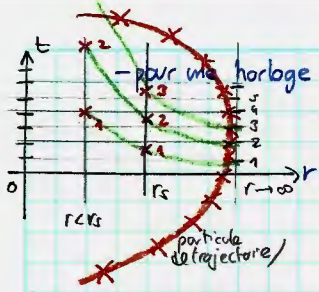 t
- pour une horloge
2
3
5
4
1
2
3
2
1
1
0
r
r<rs
rs
r→∞
particule
de trajectoire/